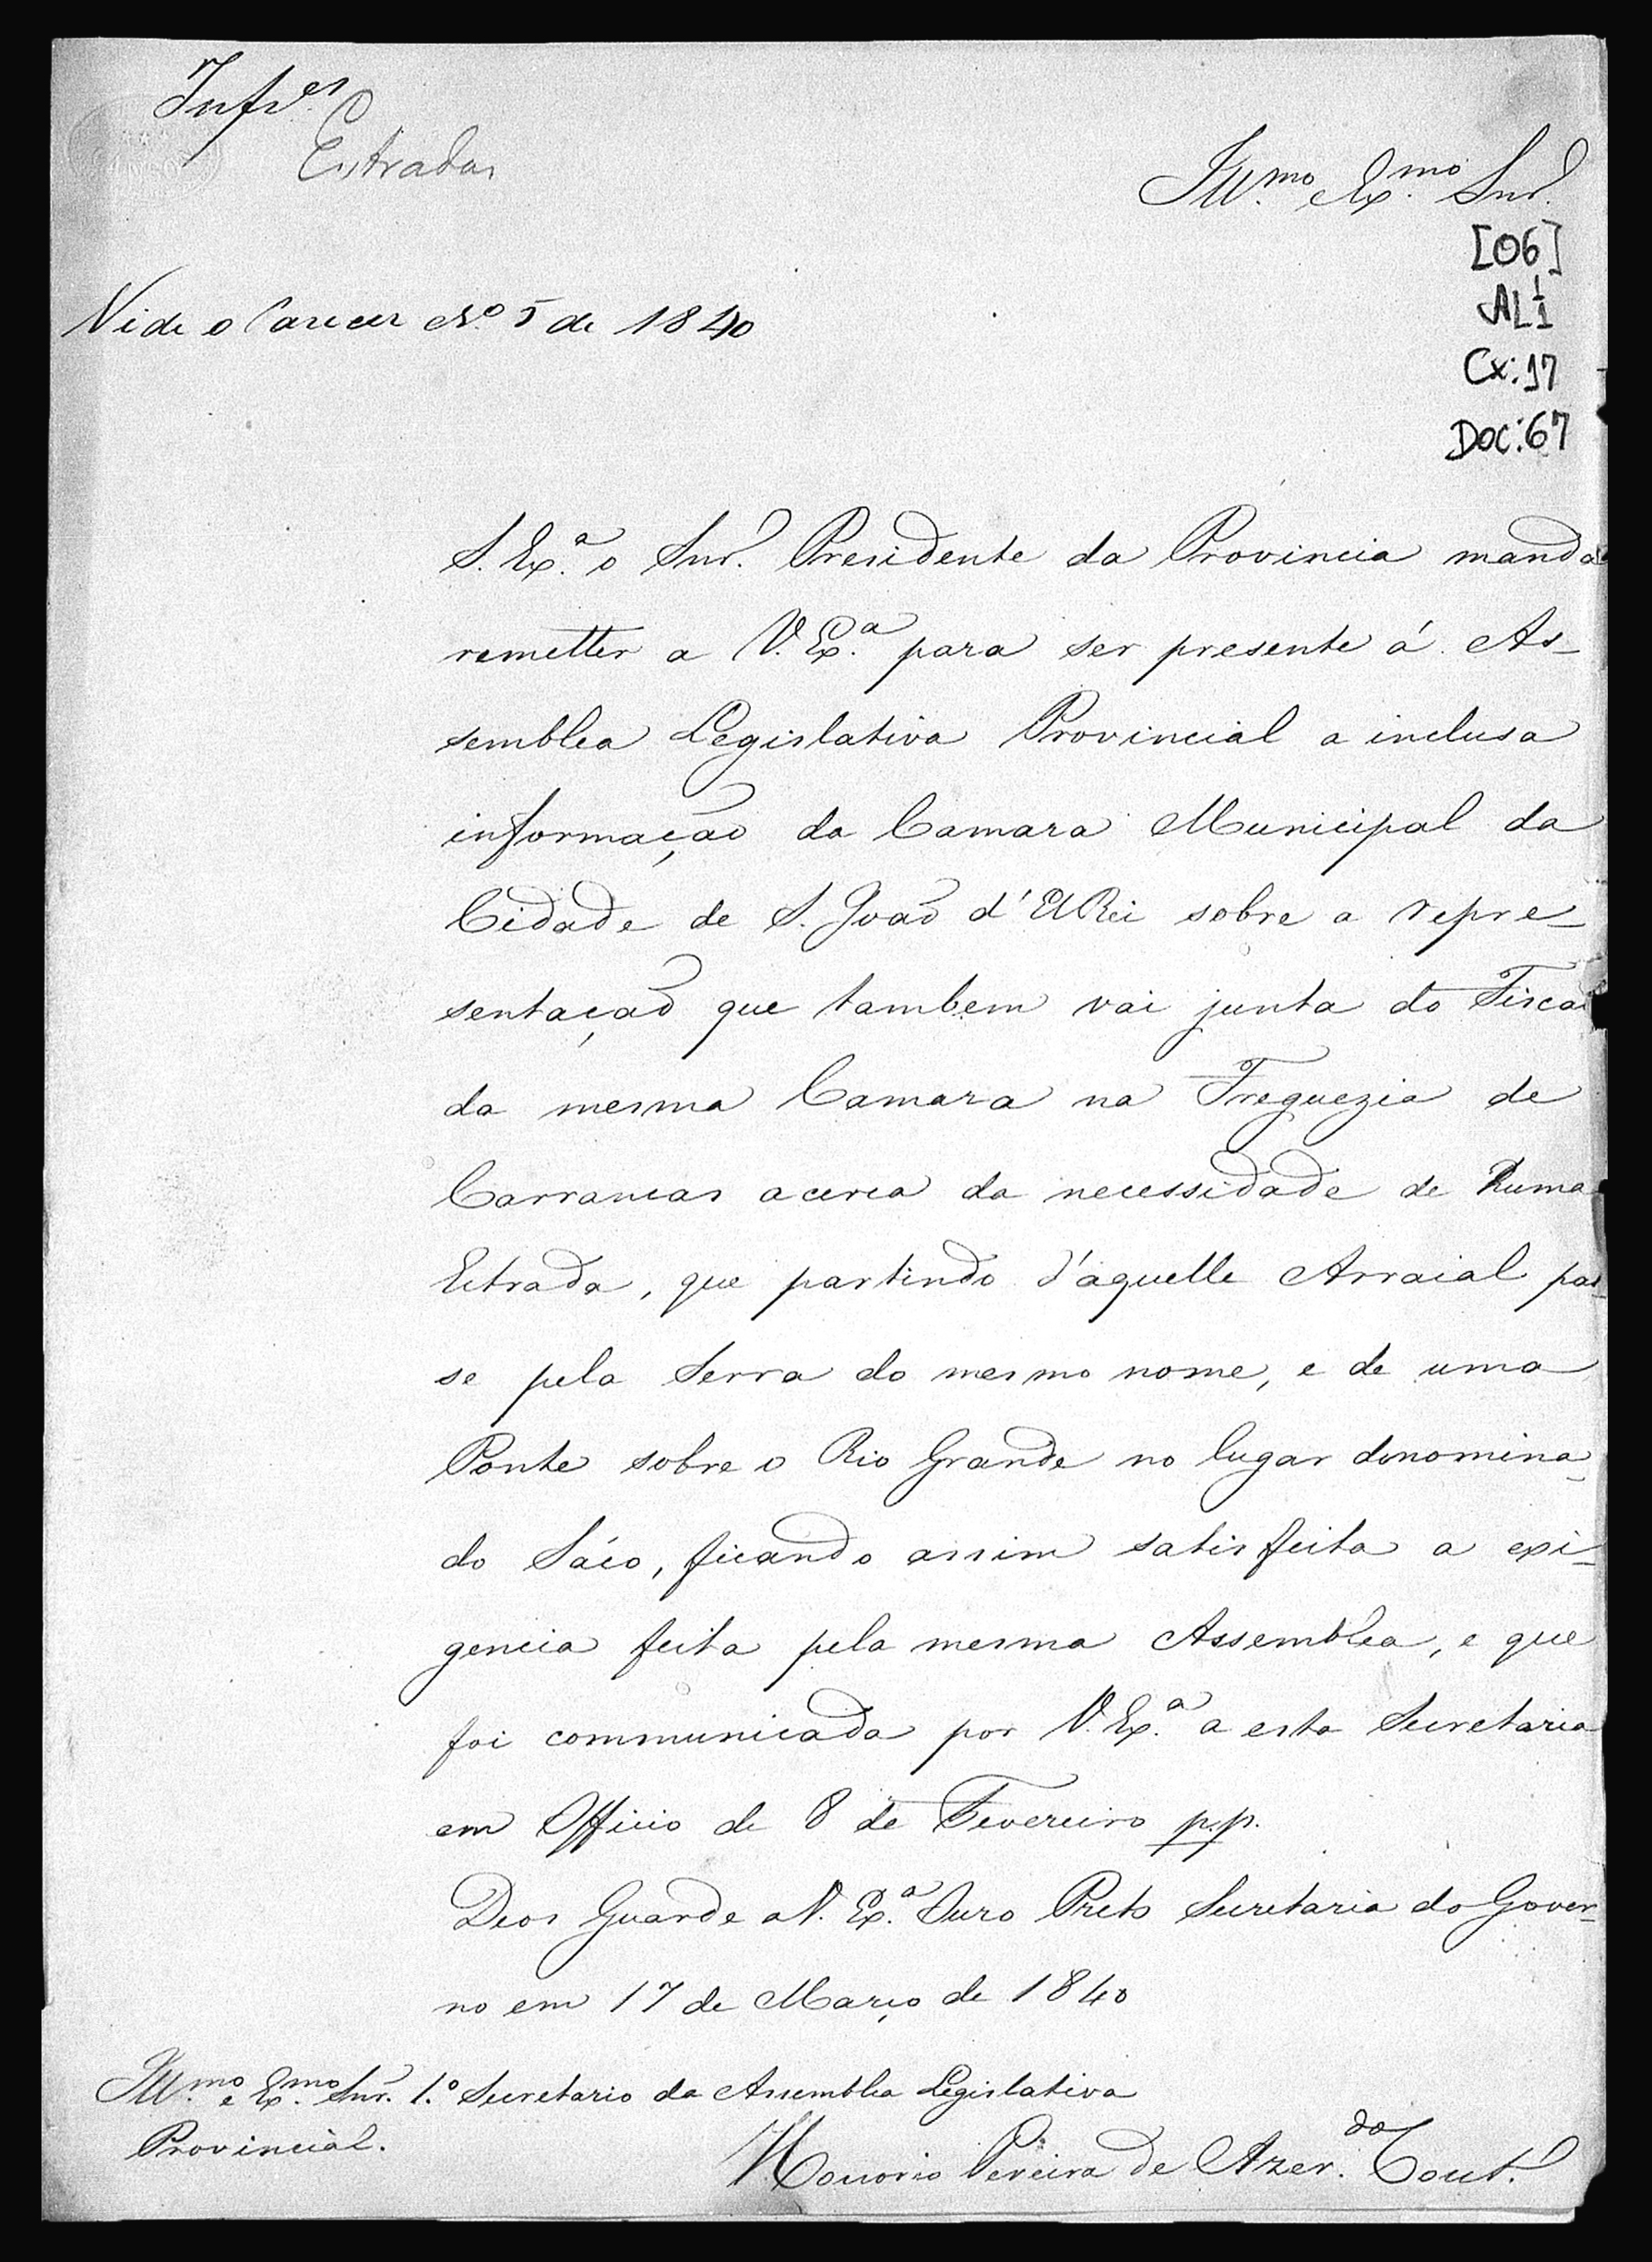 Infr.es
Estradas
Ill.mo Ex.mo Snr.
[06]
AL 1
1
Cx:17
Doc:67
Vide o Parecer No. 5 de 1840
S. Ex.a o Snr. Presidente da Provincia manda
remetter a V. Ex.a para ser presente á As-
semblea Legislativa Provincial a inclusa
informação da Camara Municipal da
Cidade de S. João d'ElRei sobre a repre-
sentação que tambem vai junta do Fiscal
da mesma Camara na Freguezia de
Carrancas acerca da necessidade de huma
Estrada, que partindo d'aquelle Arraial pas-
se pela Serra do mesmo nome, e de uma
Ponte sobre o Rio Grande no lugar denomina-
do Sáco, ficando assim satisfeita a exi-
gencia feita pela mesma Assemblea, e que
foi communicada por V. Ex.a a esta Secretaria
em Officio de 8 de Fevereiro p.p.
Deos Guarde a V. Ex.a Ouro Preto Secretaria do Gover-
no em 17 de Março de 1840
Ill.mo e Ex.mo Snr. 1.o Secretario da Assemblea Legislativa
Provincial.
Honorio Pereira de Azer.do Cout.o